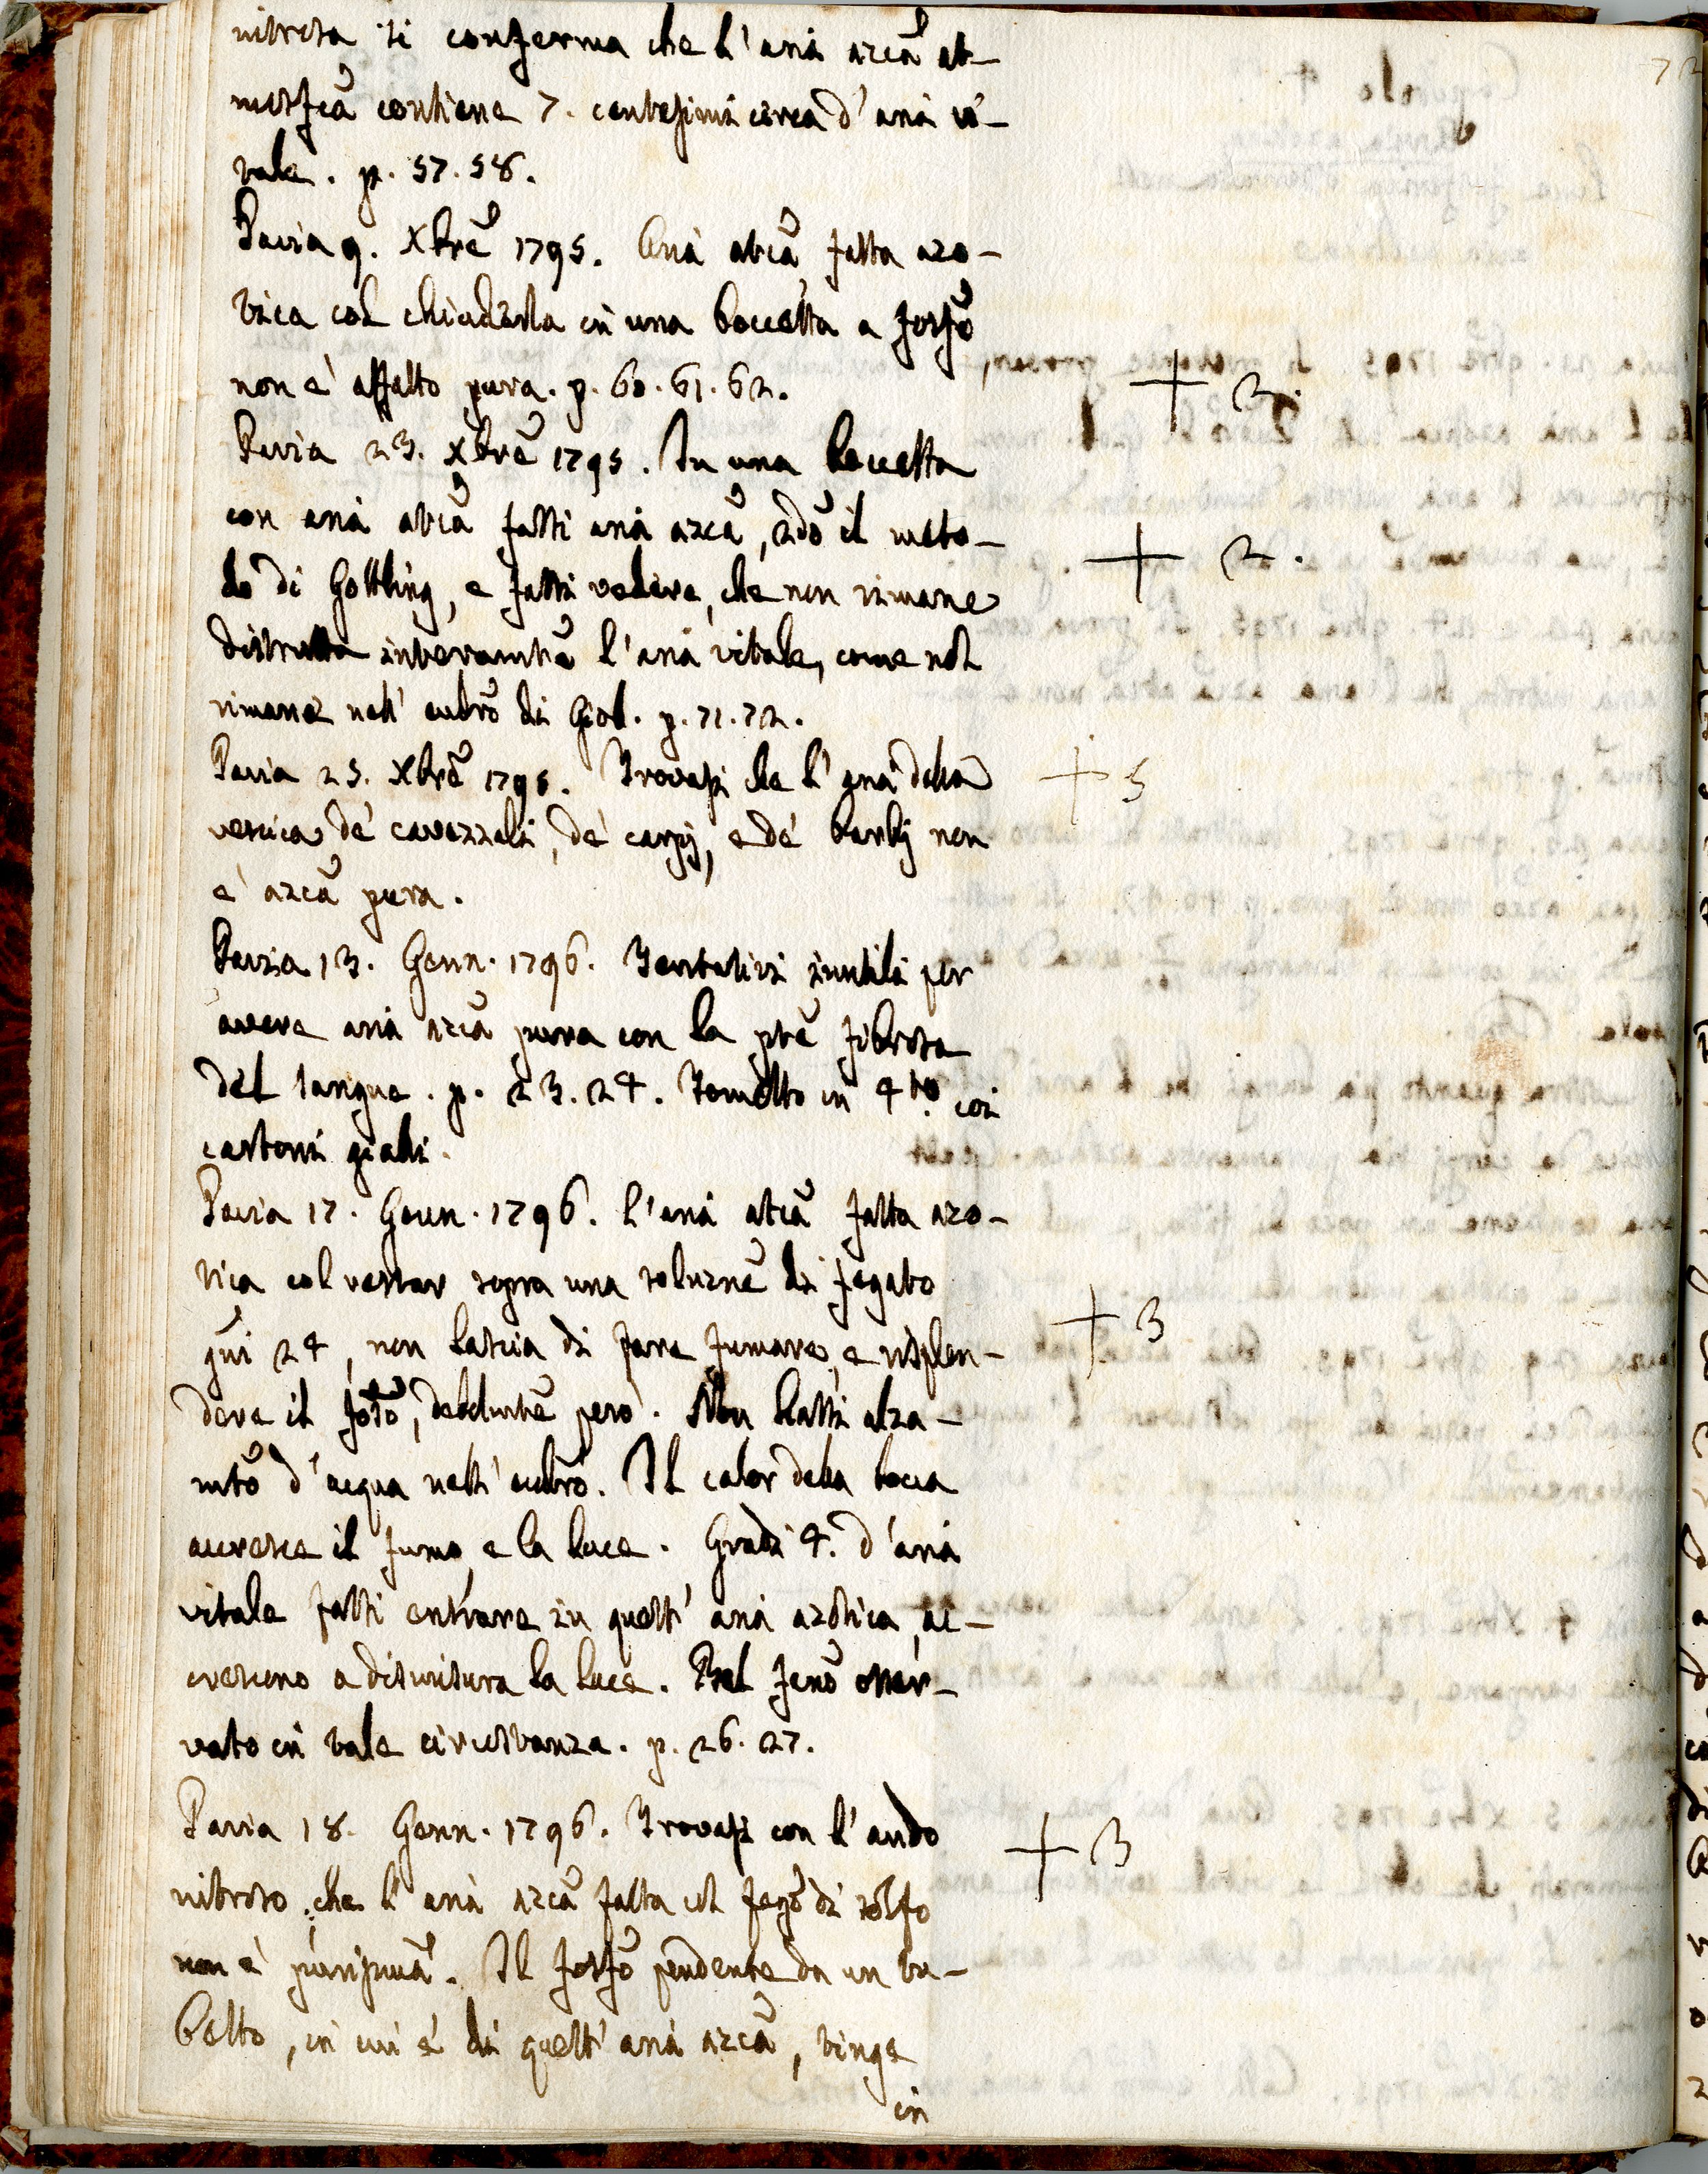 nitrosa si conferma che l'aria azca at-
mosfca contiene 7. centesimi circa d'aria vi-
tale. p. 57. 58.
Pavia 9. Xbre 1795. Aria atca fatta azo-
tica col chiuderla in una boccetta a fosfo
non è affatto pura. p. 60. 61. 62.
+ 3.
Pavia 23. Xbre 1795. In una boccetta
con aria atca fassi aria azca, 2do il meto-
+ 2.
do di Gottling, e fassi vedere, che non rimane
distrutta interamte l'aria vitale, come nol
rimane nell' eudro di Giob. p. 71. 72.
Pavia 25. Xbre 1795. Trovasi che l'aria della
+ 5
vescica de' cavezzali, de' carpj, e de' barbj non
è azca pura.
Pavia 13. Genn. 1796. Tentativi inutili per
avere aria azca pura con la pte fibrosa
del sangue. p. 23. 24. Tometto in 4to. coi
cartoni gialli.
Pavia 17. Genn. 1796. L'aria atca fatta azo-
tica col restar sopra una soluzne di fegato
gni 24, non lascia di fare fumare, e risplen-
+ 3
dere il fosfo, debolmte però. Non hassi alza-
mto d'acqua nell' eudro. Il calor della bocca
accresce il fumo, e la luce. Gradi 4. d'aria
vitale fatti entrare in quest' aria azotica, ac-
crescono a dismisura la luce. Bel feno osser-
vato in tale circostanza. p. 26. 27.
Pavia 18. Genn. 1796. Trovasi con l'acido
+ 3
nitroso, che l'aria azca fatta col fego di solfo
non è purissima. Il fosfo pendente da un tu-
betto, in cui è di quest' aria azca, tinge
in